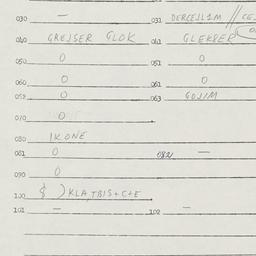 030 — 031 DERCEJL1M // CE
040 GREJSER GLOK 041 GLEKPER
050 0 051 0
060 0 061 0
052 0 063 GOJIM
070 0
080 IKONE
081 0 082 —
090 0
100 { ) KLA,TBIS+C+E
101 — 102 —